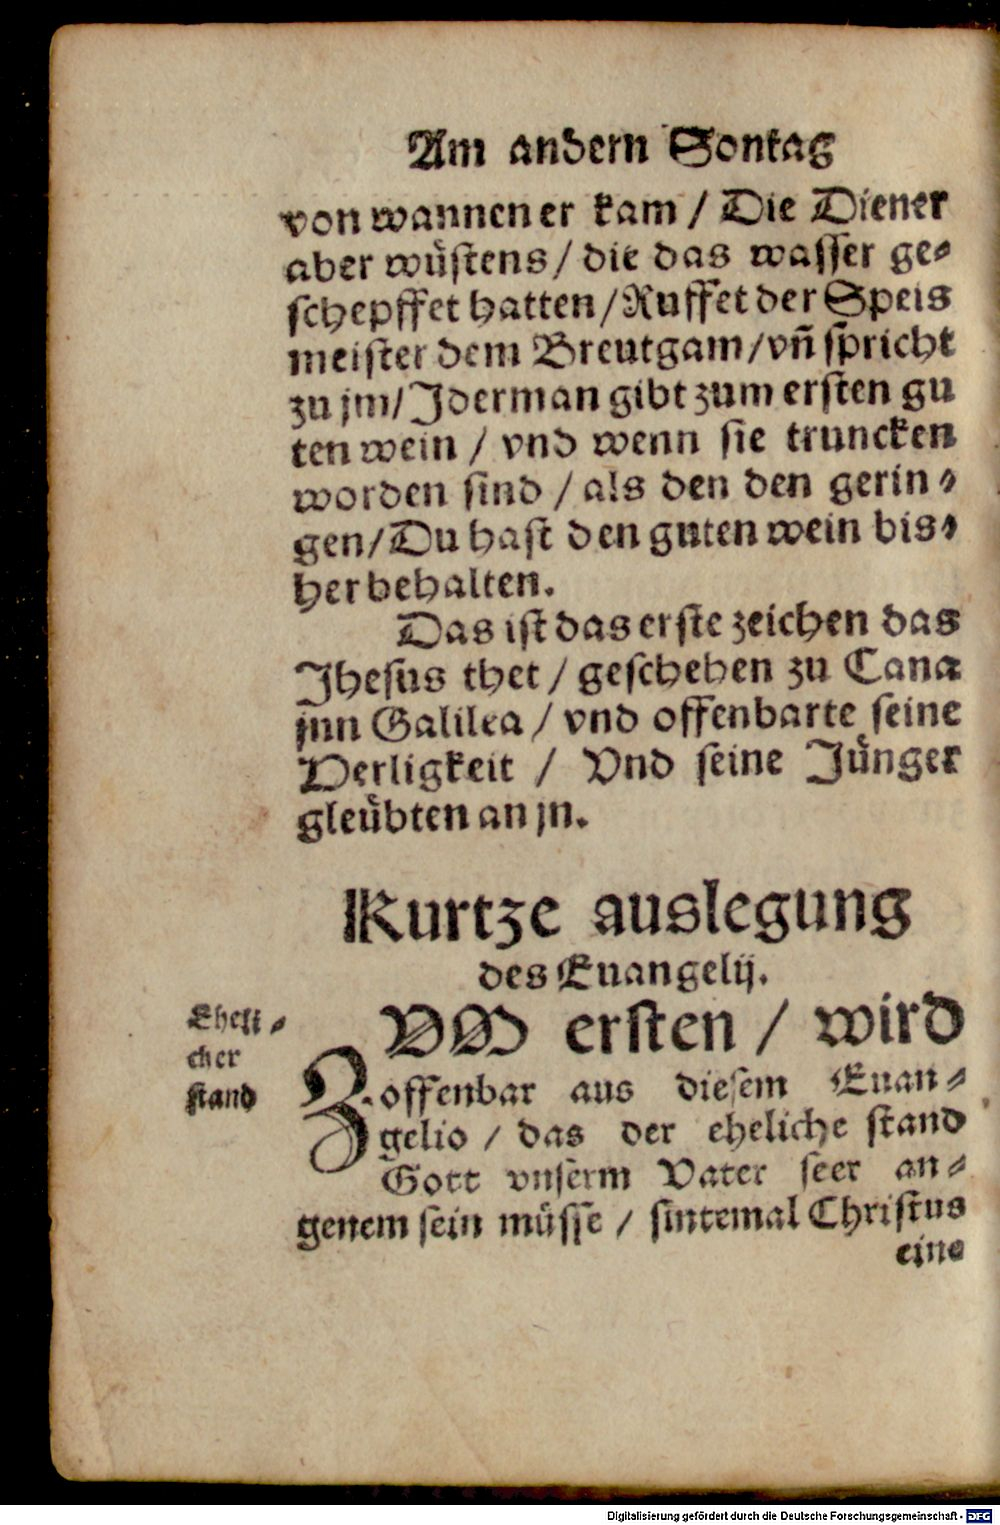 Am andern Sontag
von wannen er kam / Die Diener
aber wuͤstens / die das wasser ge⸗
schepffet hatten / Ruffet der Speis
meister dem Breutgam / vñ spricht
zu jm / Jderman gibt zum ersten gu
ten wein / vnd wenn sie truncken
worden sind / als den den gerin⸗
gen / Du hast den guten wein bis⸗
her behalten.
Das ist das erste zeichen das
Jhesus thet / geschehen zu Cana
jnn Galilea / vnd offenbarte seine
Herligkeit / Vnd seine Juͤnger
gleuͤbten an jn.
Kurtze auslegung
des Euangelij.
Eheli⸗
cher
stand
ZVM ersten / wird
offenbar aus diesem Euan⸗
gelio / das der eheliche stand
Gott vnserm Vater seer an⸗
genem sein muͤsse / sintemal Christus
eine
Digitalisierung gefördert durch die Deutsche Forschungsgemeinschaft - DFG